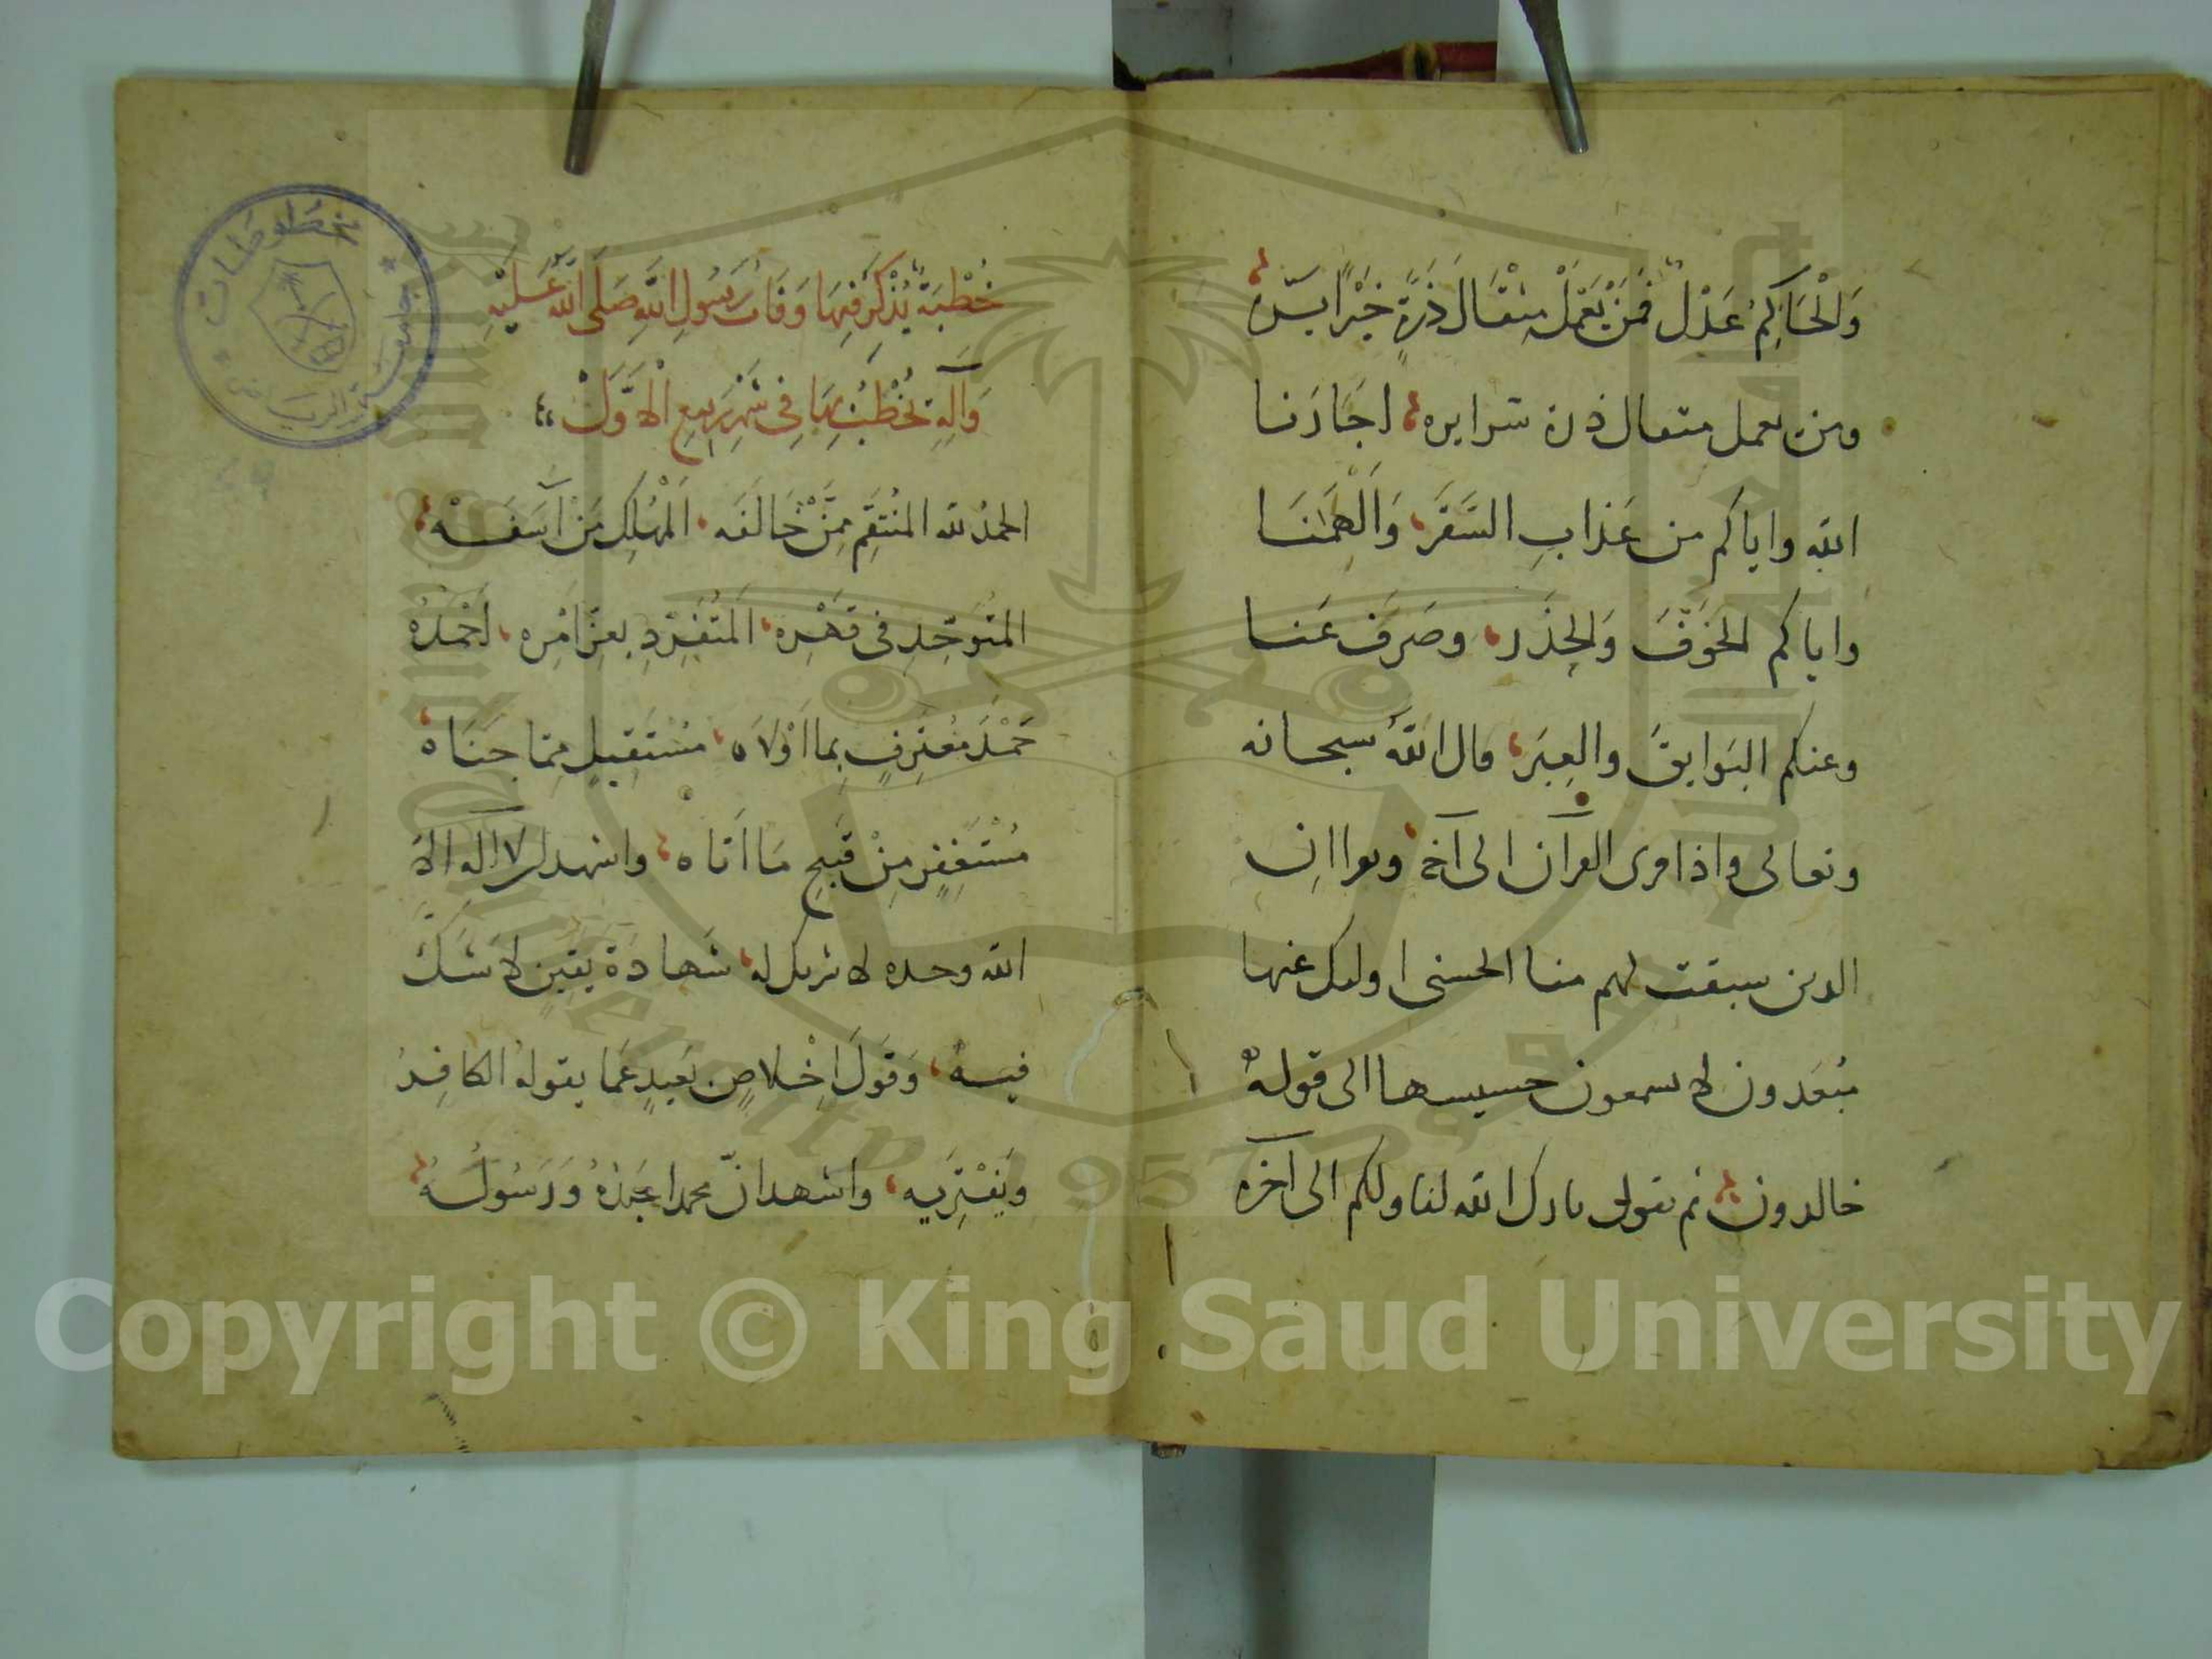 وَالْحَاكِمُ عَدْلٌ فَمَنْ يَعْمَلْ مِثْقَالَ ذَرَّةٍ خَيْرًا يَرَه
ومن يعمل مثقال ذرة شرا يره اجَارَنا
الله واياكم من عَذابِ السَّقَرَ وَاَلْهَمَنَا
واياكم الخَوْفَ وَالحِذَر وصَرَفَ عَنا
وعنكم البَوايِقَ والعِبَر قال اللهُ سبحانه
وتعالى واذا قرى القرآن الى آخره وقرا انِ
الدين سبقت لهم منا الحسنى اولئك عنها
مُبعَدون لا يسمعون حسيسها الى قوله
خالدون ثم يقول بارك الله لنا ولكم الى آخره
خُطْبَةٌ يُذْكَرُ فِيهَا وَفَاتُ رَسُولِ اللهِ صَلَّى اللهُ عَلَيْهِ
وَآلِهِ يُخْطَبُ بِهَا فِى شَهْرِ رَبِيعِ الْأَوَّلْ
الحمدُ لله المنُتَقِمِ مِمَّنْ خَالَفَه اَلمُهْلِكِ مَنْ آسَفَهْ
المتُوَحِّدِ فى قَهْرِه المُتَفَرِّدِ بعِزِّ اَمْرِه اَحْمَدُهُ
حَمْدَ مُعْتَرِفٍ بِما اَوْلَاه مُسْتَقِيلٍ مِمّا جَنَاه
مُسْتَغْفِرٍ مِنْ قَبِيحِ مَا اَتَاه واشهد ان لا اله الا
الله وحده لا شريك له شَهادَةَ يَقِينٍ لا شَكَّ
فيه وَقَوْلَ اِخْلاصٍ بَعِيدٍ عَمَّا يقوله الكافِرُ
وَيَفْتَرِيه واشهد انّ محمدا عَبْدُهُ وَرَسُولُهُ
مخطوطات
جامعة الرياض
Copyright © King Saud University
1957